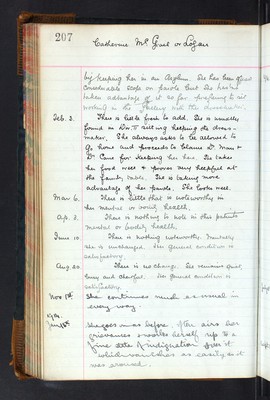 207
Catherine Mc or Logan
by keeping her in an Asylum. She has been given
considerable scope on parole but she has not
taken advantage of it so far preferring to sit
nothing in the
Feb. 3. There is little fresh to add. She is usually
found in Div II sitting helping the dress-
maker. She always asks to be allowed to
go home and proceeds to blame Dr
Dr for keeping her here. She takes
her food well & proves very helpful at
the family table. She is taking more
advantage of her parole. She looks well.
Mar 6. There is little that is noteworthy in
her mental or bodily health.
Apr. 8. There is nothing to note in this patient's
mental or bodily health.
June 10. There is nothing noteworthy. Mentally
she is unchanged. Her general condition is
satisfactory.
Aug 20. There is no change. She remains quiet,
busy and cheerful. Her general condition is
satisfactory.
Nov 1st She continues much as usual in
every way
She goes on as before. She airs her
grievances & works herself up to a
fine state of indignation over it
which vanishes as easily as it
was aroused.